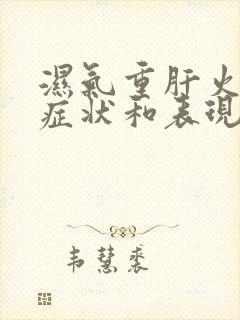 濕氣重肝火
症狀和表現
韦慧裘